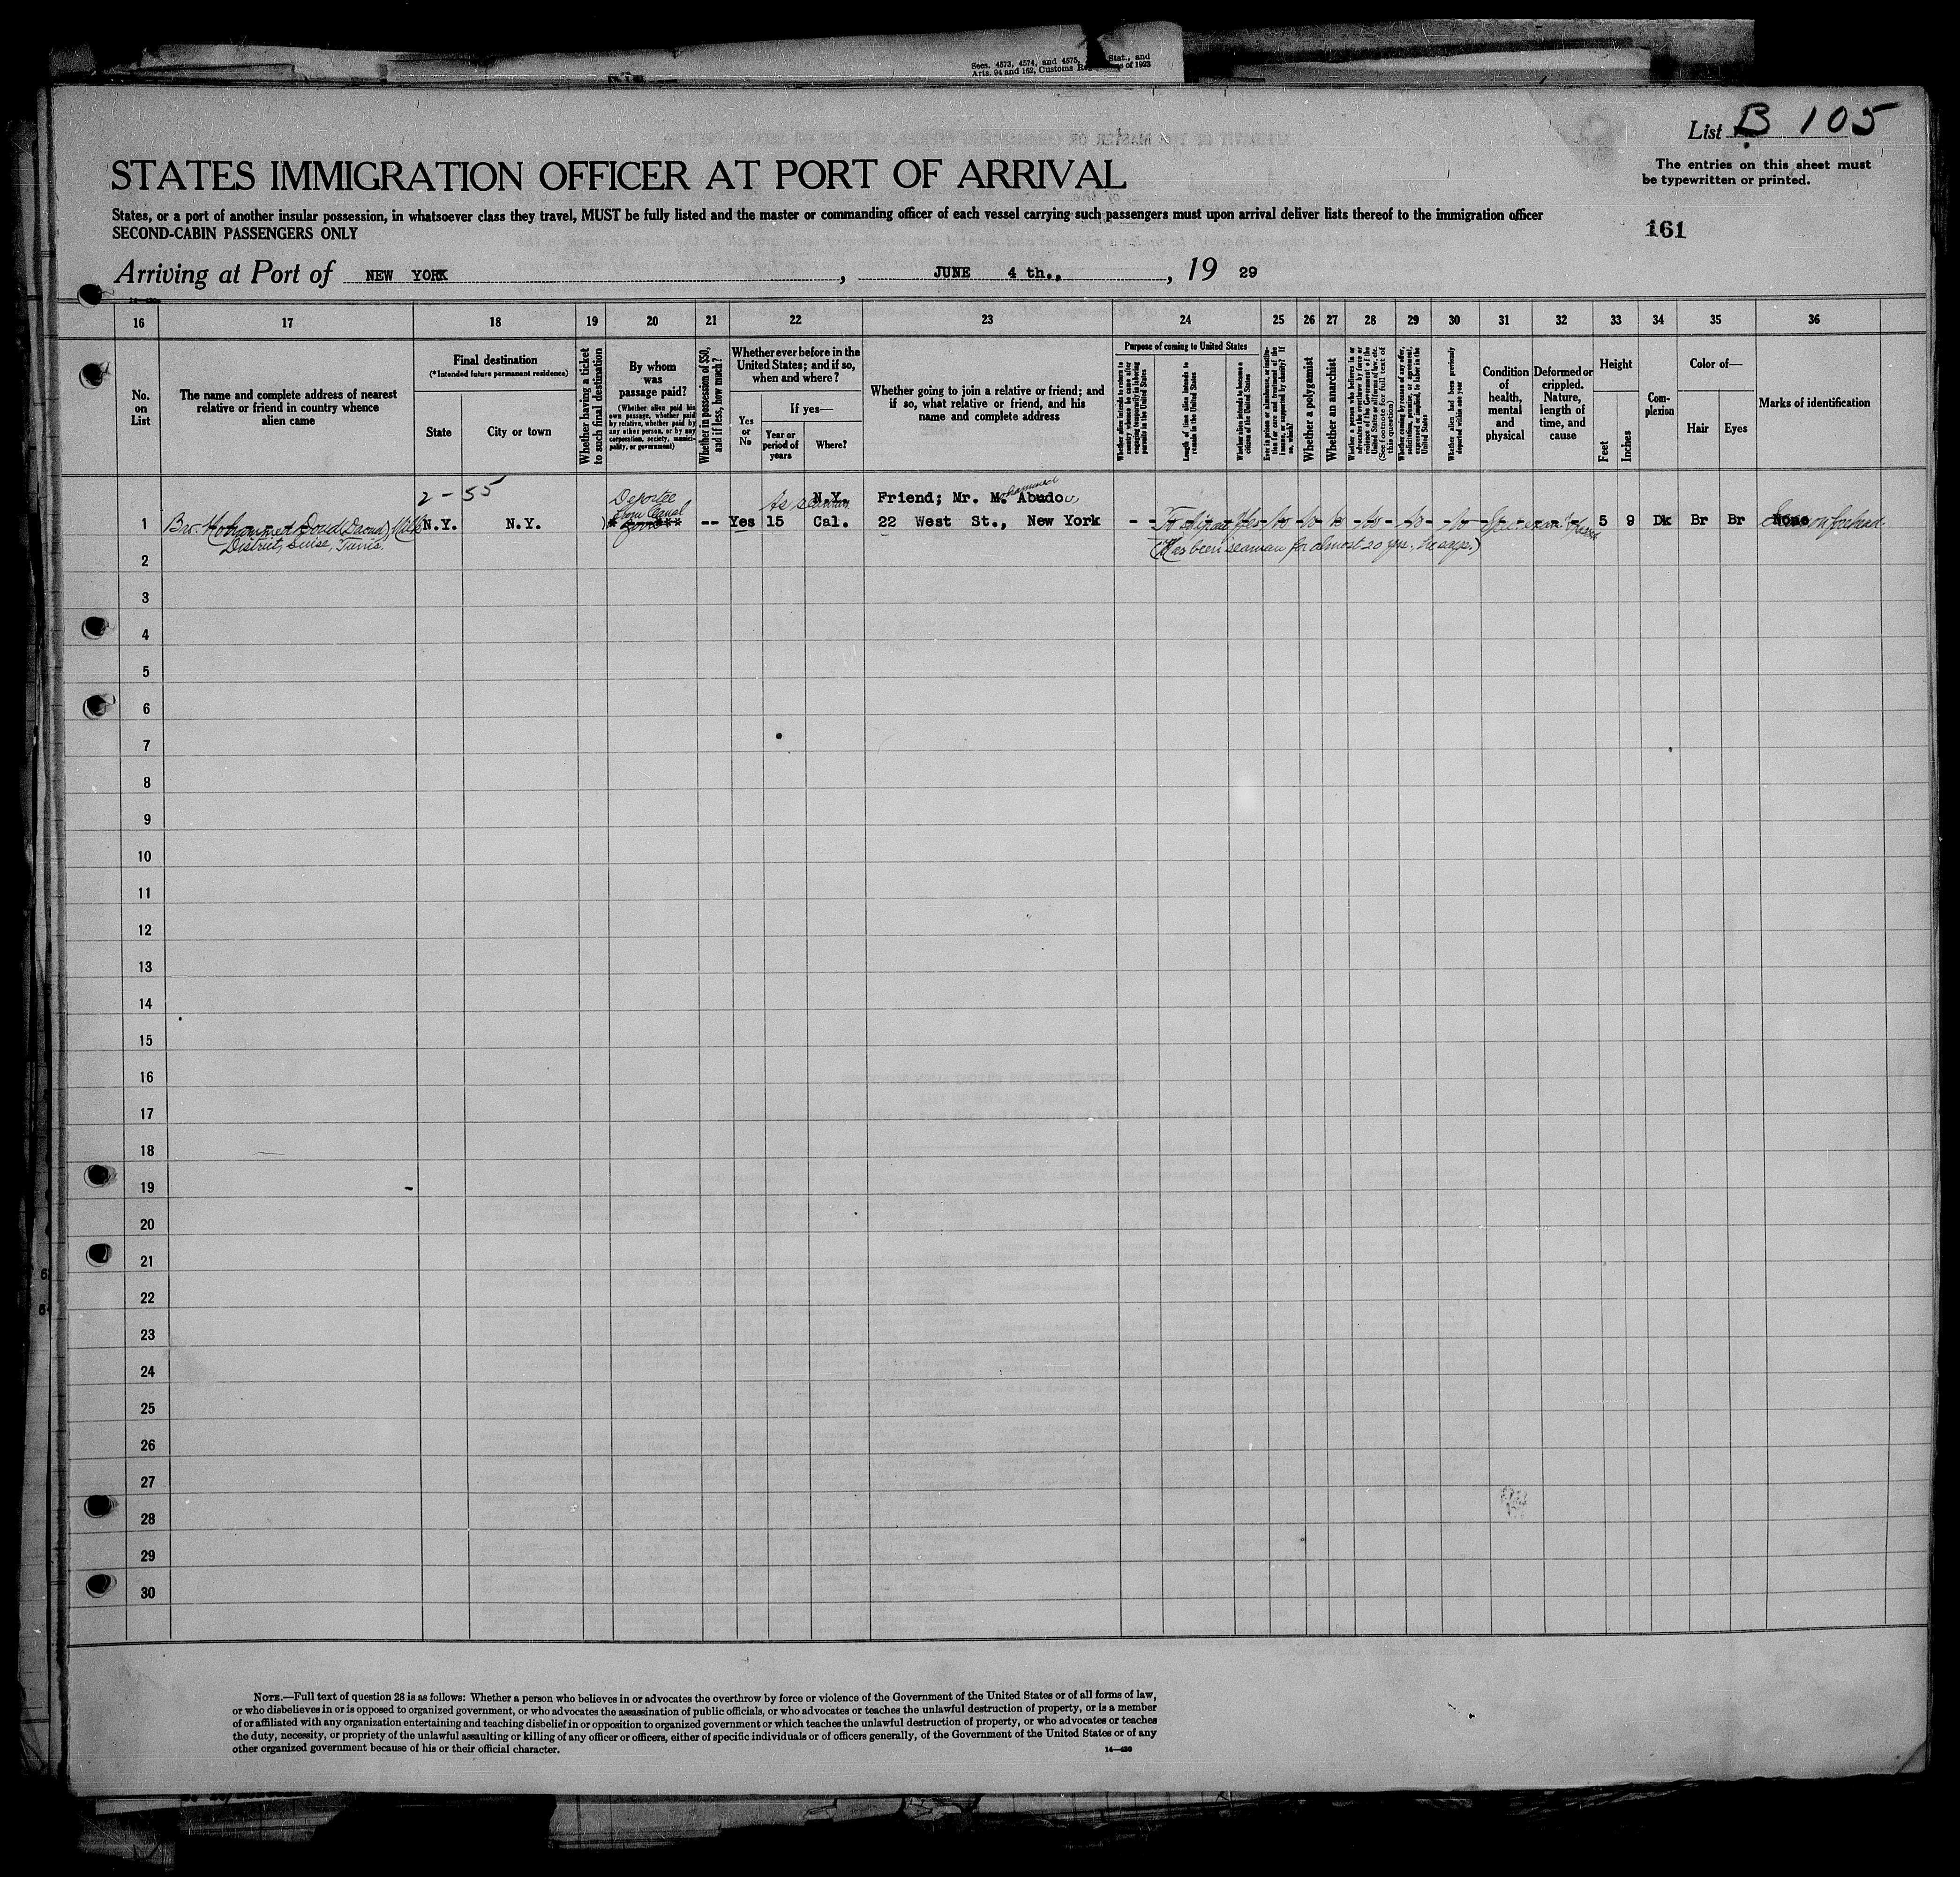 Secs. 4573, 4574, and 4575, Stat., and
Arts. 94 and 162, Customs of 1923
List B 105
The entries on this sheet must
be typewritten or printed.
161
STATES IMMIGRATION OFFICER AT PORT OF ARRIVAL
States, or a port of another insular possession, in whatsoever class they travel, MUST be fully listed and the master or commanding officer of each vessel carrying such passengers must upon arrival deliver lists thereof to the immigration officer
SECOND-CABIN PASSENGERS ONLY
Arriving at Port of NEW YORK, JUNE 4 th., 19 29
16 17 18 19 20 21 22 23 24 25 26 27 28 29 30 31 32 33 34 35 36
No. on List
The name and complete address of nearest relative or friend in country whence alien came
Final destination
(*Intended future permanent residence)
State
City or town
Whether having a ticket to such final destination
By whom was passage paid?
(Whether alien paid his own passage, whether paid by relative, whether paid by any other person, or by any corporation, society, municipality, or government)
Whether in possession of $50, and if less, how much?
Whether ever before in the United States; and if so, when and where?
Yes or No
If yes—
Year or period of years
Where?
Whether going to join a relative or friend; and if so, what relative or friend, and his name and complete address
Purpose of coming to United States
Whether alien intends to return to country whence he came after engaging temporarily in laboring pursuits in the United States
Length of time alien intends to remain in the United States
Whether alien intends to become a citizen of the United States
Ever in prison or almshouse, or institution for care and treatment of the insane, or supported by charity? If so, which?
Whether a polygamist
Whether an anarchist
Whether a person who believes in or advocates the overthrow by force or violence of the Government of the United States or all forms of law, etc. (See footnote for full text of this question)
Whether coming by reason of any offer, solicitation, promise, or agreement, expressed or implied, to labor in the United States
Whether alien had been previously deported within one year
Condition of health, mental and physical
Deformed or crippled. Nature, length of time, and cause
Height
Feet
Inches
Complexion
Color of—
Hair
Eyes
Marks of identification
2-55
Deportee
from Canal
As seaman
N.Y.
Friend; Mr. M. Abudou
Mohammed
1 Bro. Mohammed N.Y. N.Y. -- Yes 15 Cal. 22 West St., New York - - Yes No No No No No No 5 9 Dk Br Br None on forehead
District, Tunis.
(Has been seaman for almost 20 yrs., he says.)
2
3
4
5
6
7
8
9
10
11
12
13
14
15
16
17
18
19
20
21
22
23
24
25
26
27
28
29
30
NOTE.—Full text of question 28 is as follows: Whether a person who believes in or advocates the overthrow by force or violence of the Government of the United States or of all forms of law,
or who disbelieves in or is opposed to organized government, or who advocates the assassination of public officials, or who advocates or teaches the unlawful destruction of property, or is a member
of or affiliated with any organization entertaining and teaching disbelief in or opposition to organized government or which teaches the unlawful destruction of property, or who advocates or teaches
the duty, necessity, or propriety of the unlawful assaulting or killing of any officer or officers, either of specific individuals or of officers generally, of the Government of the United States or of any
other organized government because of his or their official character.
14—430